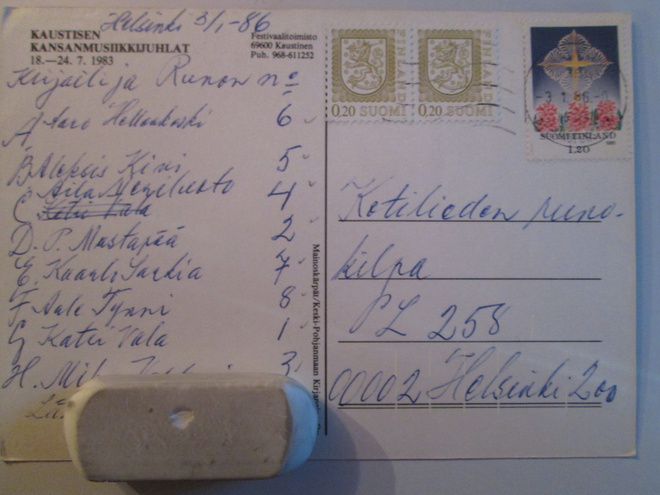 Helsinki 3/1-86
KAUSTISEN
KANSANMUSIIKKIJUHLAT
18.—24. 7. 1983
Festivaalitoimisto
69600 Kaustinen
Puh. 968-611252
Kirjailija Runon no
A Aaro Hellaakoski 6
B Aleksis Kivi 5
C Aila Meriluoto 4
Katri Vala
D. P. Mustapää 2
E. Kaarlo Sarkia 7
F Aale Tynni 8
G Katri Vala 1
H. 3
Mainoskärpät/Keski-Pohjanmaan
0.20 SUOMI
FINLAND
0.20 SUOMI
FINLAND
SUOMI FINLAND
1.20
Kotilieden runo-
kilpa
PL 258
00002 Helsinki 200